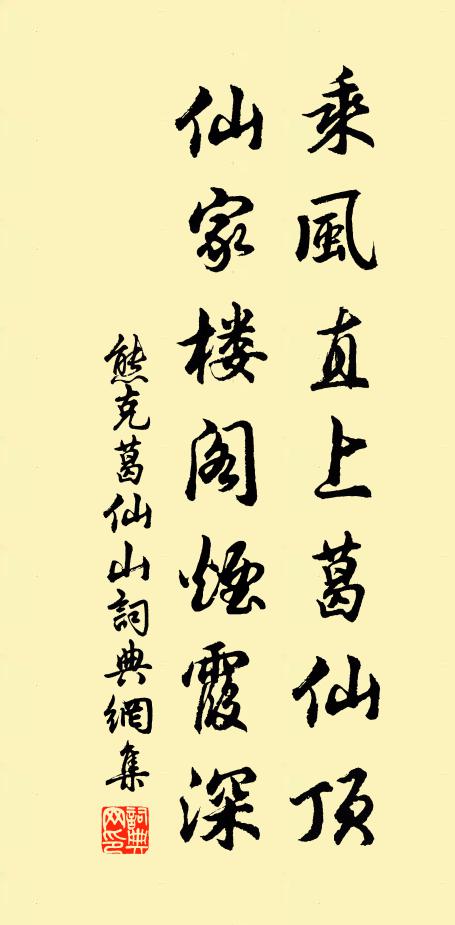 乘風直上葛仙頂
仙家楼阁煙霞深
熊克葛仙山詞典網集
詞典网印